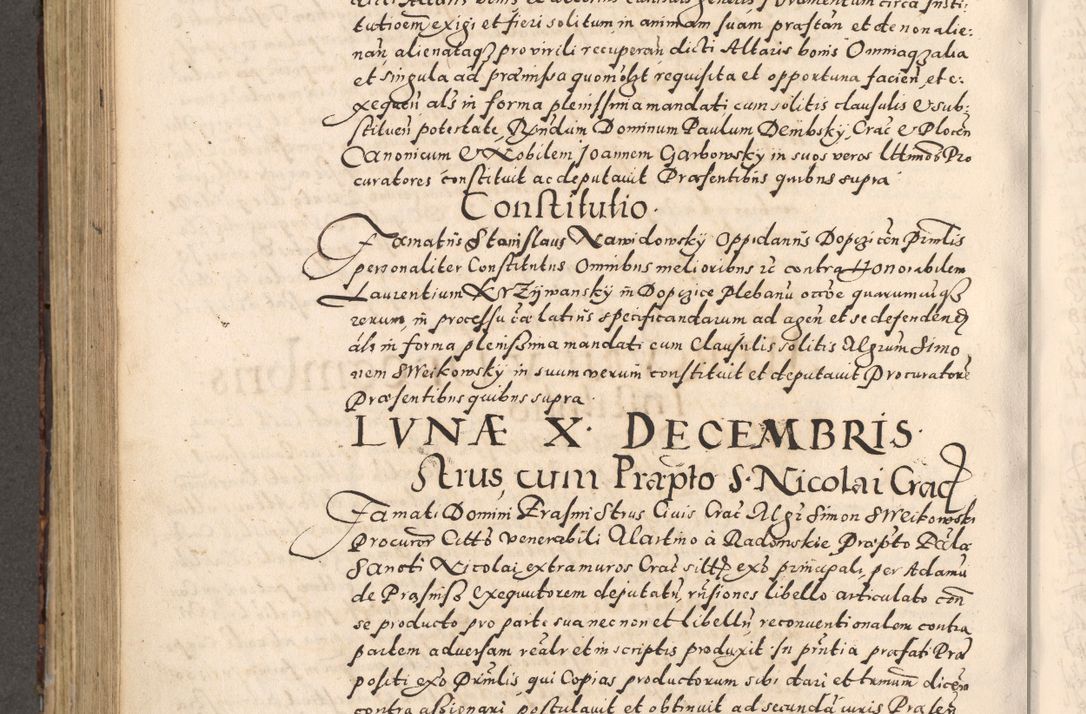 tutioem exigi et fieri solitum in animam suam præstan et de non alie:
nan alienatasq3 pro virili recuperan dicti Altaris bonis Omniaq3 alia
et singula ad præmissa quomolibet requisita et opportuna facien et e:
xequen als in forma plenissima mandati cum solitis clausulis & sub:
stituen potestate, Rndum Dominum Paulum Dembsky, Crac & Plocen
Canonicum & Nobilem Joannem Garbowsky in suos veros lttmos Pro
curatores constituit ac deputavit Præsentibus quibus supra
Constitutio.
Famatus Stanislaus Nawidowsky Oppidanus Dopczicen Prnlis
personaliter Constitutus Omnibus melioribus rc contra Honorabilem
Laurentium Krzywansky in Dopczice Plebanu occoe quarumcuq3
rerum, in processu cæ latius specificandarum ad agen et se defenden
als in forma plenissima mandati cum Clausulis solitis Algrum Simo
nem SWeikowsky in suum verum constituit et deputavit Procuratore
Præsentibus quibus supra.
LVNÆ X. DECEMBRIS.
Strus cum Præpto S. Nicolai Crac
Famati Domini Erasmi Strus Civis Crac Algr Simon SWeikowski
Procuror Citto venerabili Martino à Radomskie Præpto Eccla
Sancti Nicolai extra muros Crac sitt exo principali, per Adamu
de Prasnisz Exequutorem deputatu, rnsiones libello articulato con
se producto pro parte sua nec non et libellu reconventionalem contra
partem adversam realr et in scriptis produxit In pntia præfati Præ
positi exo Prnlis qui Copias productorum sibi dari et trmnm dicen
contra assionari postulavit et obtinuit ad secunda iuris Præten